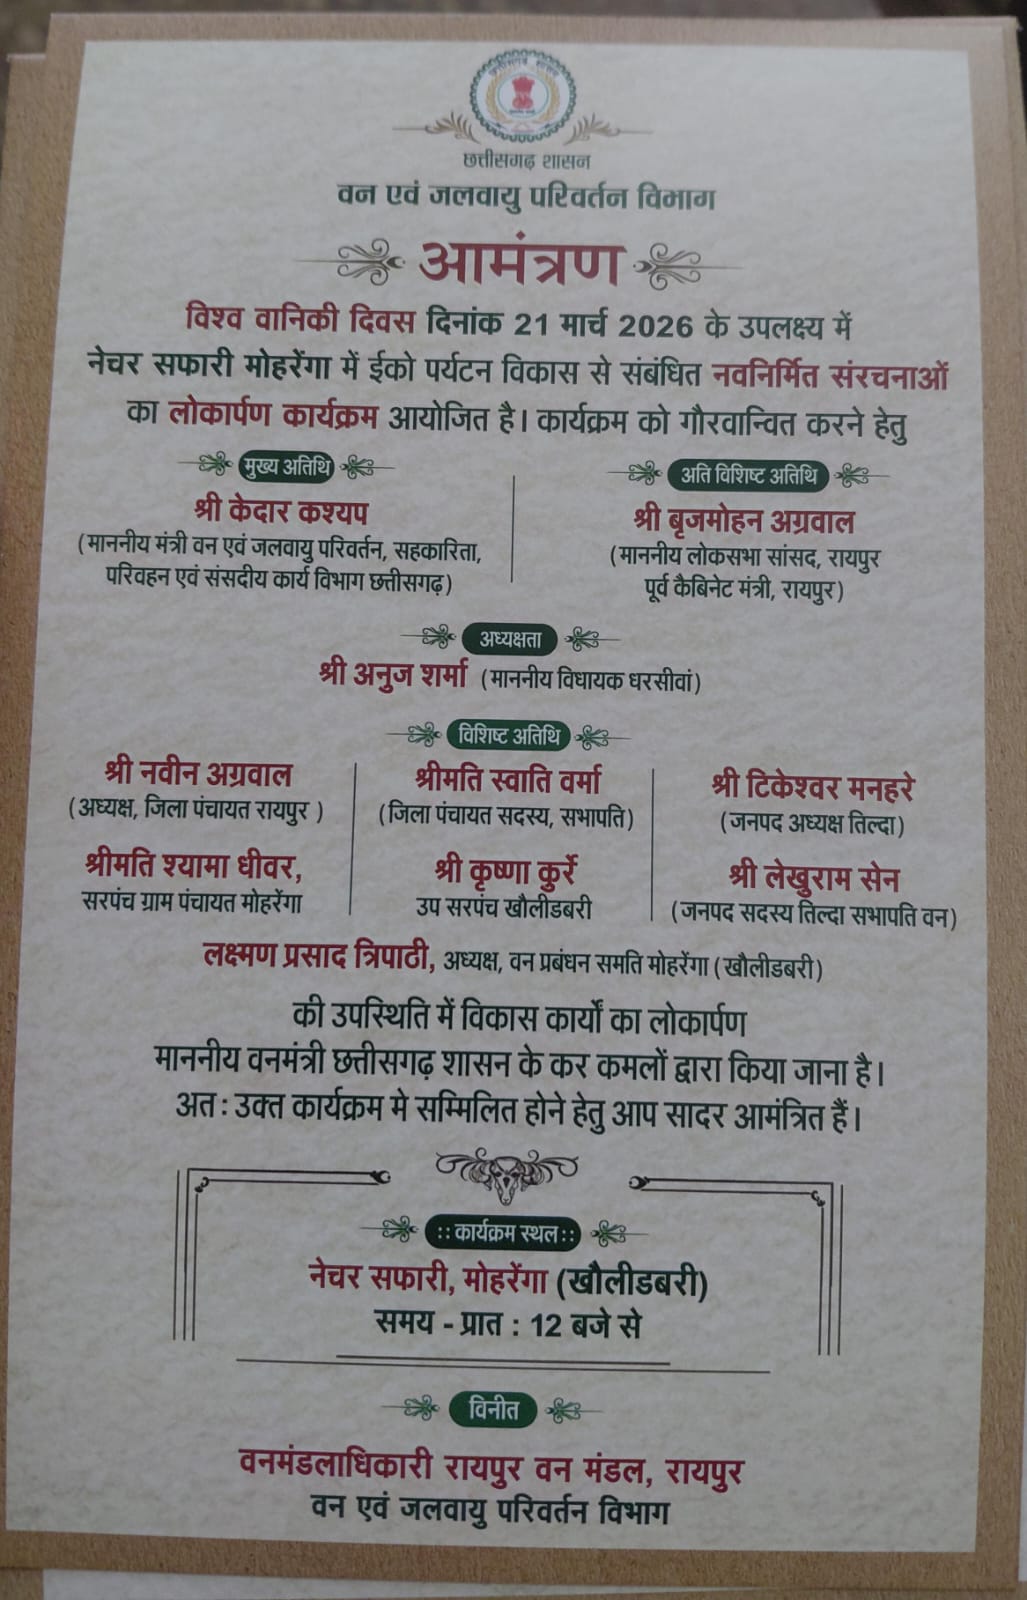 छत्तीसगढ़ शासन
छत्तीसगढ़ शासन
वन एवं जलवायु परिवर्तन विभाग
आमंत्रण
विश्व वानिकी दिवस दिनांक 21 मार्च 2026 के उपलक्ष्य में
नेचर सफारी मोहरेंगा में ईको पर्यटन विकास से संबंधित नवनिर्मित संरचनाओं
का लोकार्पण कार्यक्रम आयोजित है। कार्यक्रम को गौरवान्वित करने हेतु
मुख्य अतिथि
श्री केदार कश्यप
(माननीय मंत्री वन एवं जलवायु परिवर्तन, सहकारिता,
परिवहन एवं संसदीय कार्य विभाग छत्तीसगढ़)
अति विशिष्ट अतिथि
श्री बृजमोहन अग्रवाल
(माननीय लोकसभा सांसद, रायपुर
पूर्व कैबिनेट मंत्री, रायपुर)
अध्यक्षता
श्री अनुज शर्मा (माननीय विधायक धरसीवां)
विशिष्ट अतिथि
श्री नवीन अग्रवाल
(अध्यक्ष, जिला पंचायत रायपुर )
श्रीमति स्वाति वर्मा
(जिला पंचायत सदस्य, सभापति)
श्री टिकेश्वर मनहरे
(जनपद अध्यक्ष तिल्दा)
श्रीमति श्यामा धीवर,
सरपंच ग्राम पंचायत मोहरेंगा
श्री कृष्णा कुर्रे
उप सरपंच खौलीडबरी
श्री लेखुराम सेन
(जनपद सदस्य तिल्दा सभापति वन)
लक्ष्मण प्रसाद त्रिपाठी, अध्यक्ष, वन प्रबंधन समति मोहरेंगा (खौलीडबरी)
की उपस्थिति में विकास कार्यों का लोकार्पण
माननीय वनमंत्री छत्तीसगढ़ शासन के कर कमलों द्वारा किया जाना है।
अत: उक्त कार्यक्रम मे सम्मिलित होने हेतु आप सादर आमंत्रित हैं।
:: कार्यक्रम स्थल ::
नेचर सफारी, मोहरेंगा (खौलीडबरी)
समय - प्रात : 12 बजे से
विनीत
वनमंडलाधिकारी रायपुर वन मंडल, रायपुर
वन एवं जलवायु परिवर्तन विभाग